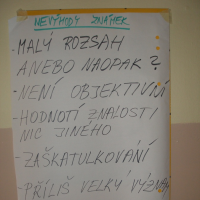 NEVÝHODY ZNÁMEK
- MALÝ ROZSAH
ANEBO NAOPAK ?
- NENÍ OBJEKTIVNÍ
- HODNOTÍ ZNALOSTI
NIC JINÉHO
- ZAŠKATULKOVÁNÍ
- PŘÍLIŠ VELKÝ VÝZNAM